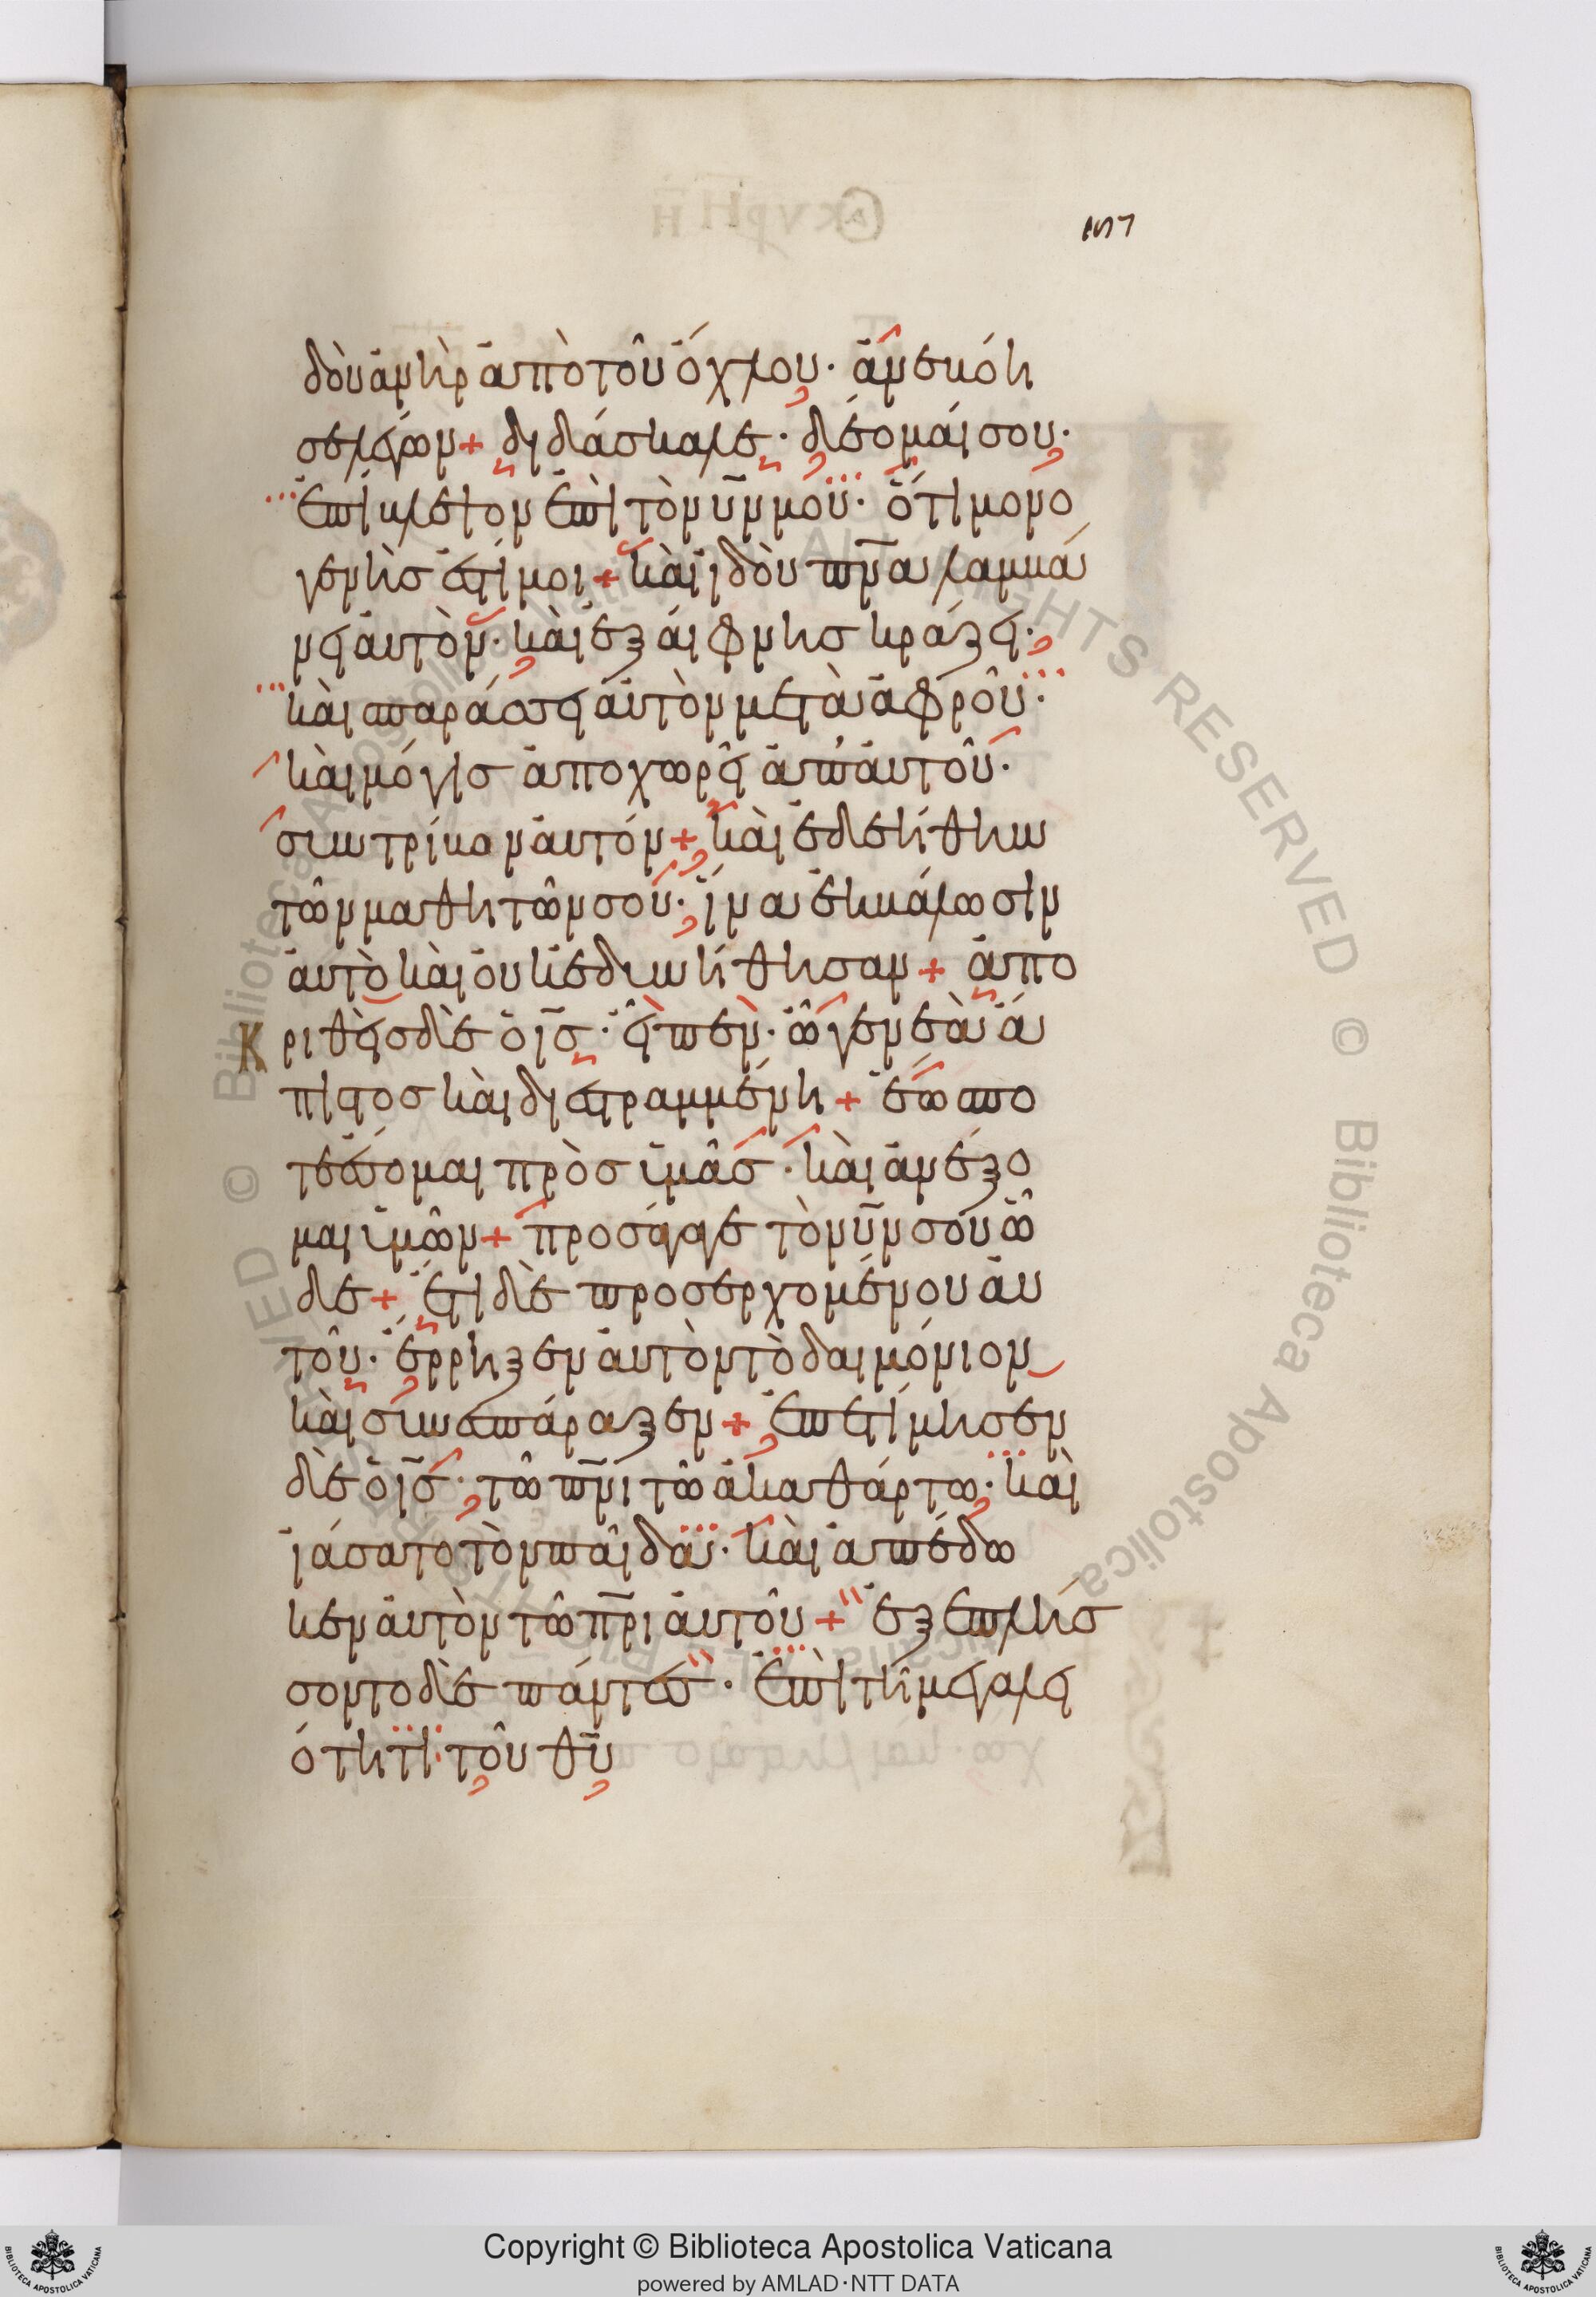 157
δοὺ ἀνὴρ ἀπὸ τοῦ ὄχλου· ἀνεκόη
σε λέγων + διδάσκαλε· δέομαί σου·
ἐπίκλειον ἐπὶ τὸν ὑν μου· ὅτι μονο
γενὴσ ἐστί μοι + καὶ ἰδοὺ πνα λαμβά
νει αὐτὸν· καὶ ἐξαίφνησ κράζει·
καὶ σπαράσσει αὐτὸν μετὰ ἀφροῦ·
καὶ μόγισ ἀποχωρεῖ ἀπ' αὐτοῦ·
συντρίβον αὐτόν + καὶ ἐδεήθην
τῶν μαθητῶν σου· ἵνα ἐκβάλωσιν
αὐτὸ καὶ οὐκ ἐδυνήθησαν + ἀπο
κριθεὶσ δὲ ὁ ισ· εἶπεν· ὦ γενεὰ ἄ
πιστοσ καὶ διεστραμμένη + ἕωσ πό
τε ἔσομαι πρὸσ ὑμᾶσ· καὶ ἀνέξο
μαι ὑμῶν + προσάγαγε τὸν ὑν σου ὧ
δε + ἔτι δὲ προσερχομένου αὐ
τοῦ· ἔρρηξεν αὐτὸν τὸ δαιμόνιον
καὶ συνεσπάραξεν + ἐπετίμησεν
δὲ ὁ ισ· τῶ πνι τῶ ἀκαθάρτω· καὶ
ἰάσατο τὸν παῖδα· καὶ ἀπέδω
κεν αὐτὸν τῶ πρι αὐτοῦ + ἐξεπλήσ
σοντο δὲ πάντεσ· ἐπὶ τῆ μεγαλει
ότητι τοῦ θυ
Copyright © Biblioteca Apostolica Vaticana
powered by AMLAD·NTT DATA